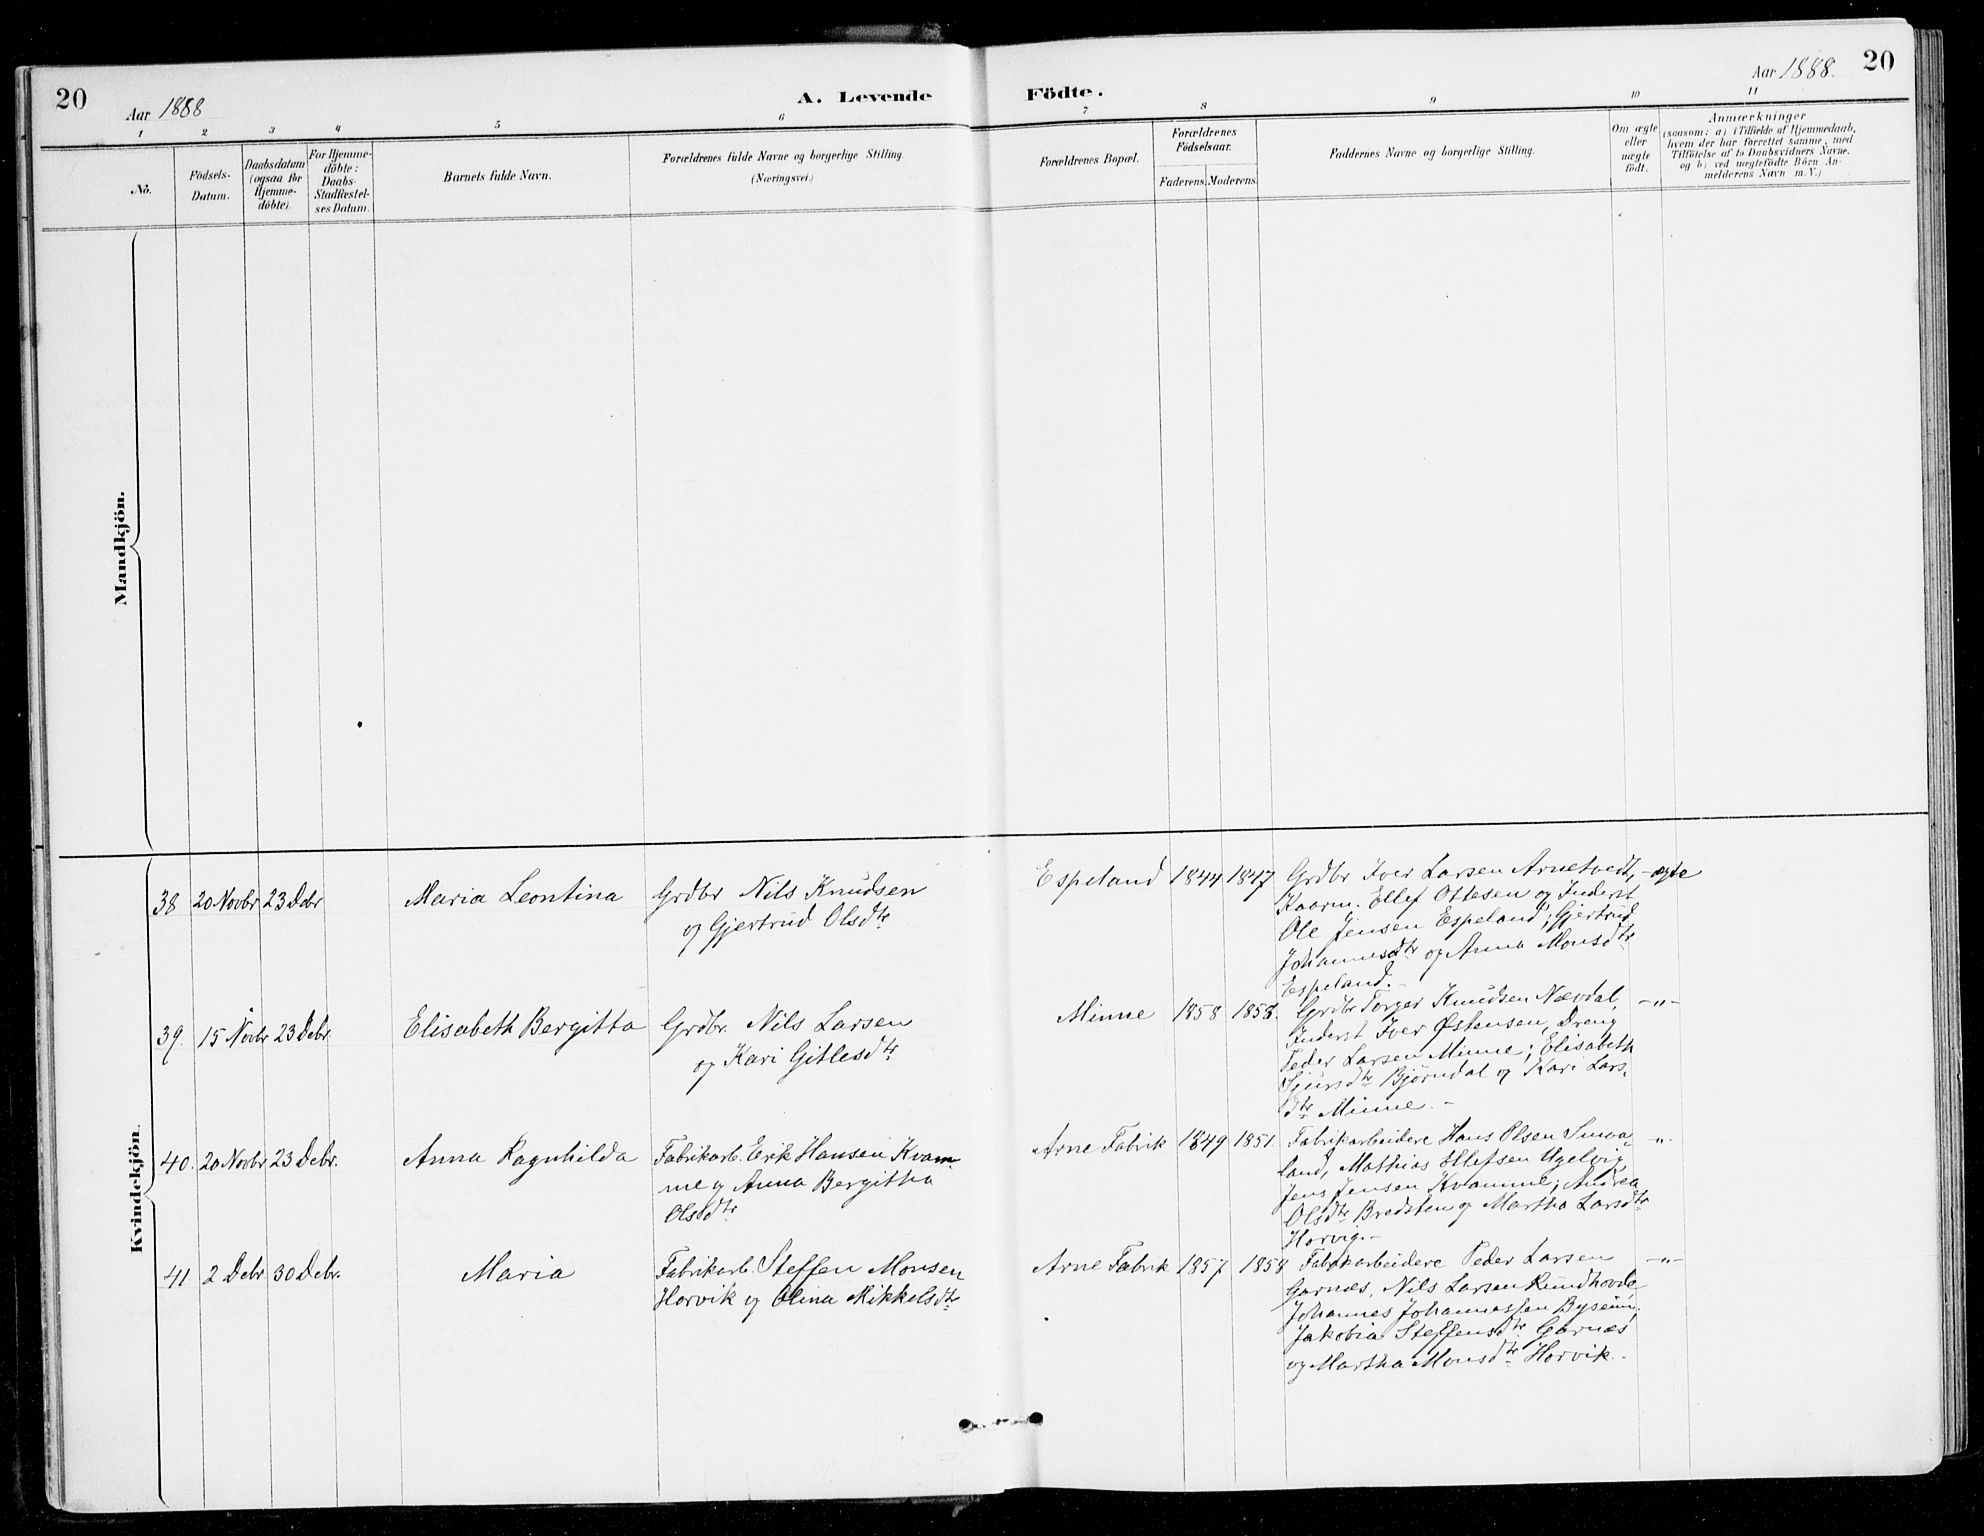 20
Aar 1888
A. Levende Födte.
Aar 1888.
20
1 2 3 4 5 6 7 8 9 10 11
No.
Födsels-
Datum.
Daabsdatum
(ogsaa for
Hjemme-
döbte).
For Hjemme-
döbte:
Daabs-
Stadfæstel-
ses Datum.
Barnets fulde Navn.
Forældrenes fulde Navne og borgerlige Stilling.
(Næringsvei.)
Forældrenes Bopæl.
Forældrenes
Födselsaar.
Faderens. Moderens.
Faddernes Navne og borgerlige Stilling.
Om ægte
eller
uægte
födt.
Anmærkninger
(saasom: a) i Tilfælde af Hjemmedaab,
hvem der har forrettet samme, med
Tilföielse af to Daabsvidners Navne.
og b) ved uægtefödte Börn An-
melderens Navn m. V.)
Mandkjön.
Kvindekjön.
38 20 Novbr 23 Debr Maria Leontina
Grdbr Nils Knudsen
og Gjertrud Olsdtr
Espeland 1844 1847
Grdbr Iver Larsen Arnetvedt,
Kaarm. Ellef Ottesen og Inderst
Ole Jensen Espeland; Gjertrud
Johannesdtr og Anna Monsdtr
Espeland.-
ægte
39. 15 Novbr 23 Debr. Elisabeth Bergitta
Grdbr. Nils Larsen
og Kari Gitlesdtr
Minne 1858 1858.
Grdbr Torger Knudsen Nævdal,
Inderst Iver Østensen, Dreng
Peder Larsen Minne; Elisabeth
Sjursdtr Bjørndal og Kari Lars-
dtr Minne.-
-"-
40. 20 Novbr 23 Debr. Anna Ragnhilda
Fabrikarb. Erik Hansen Kvam-
me og Anna Bergitha
Olsdtr
Arne Fabrik 1849 1851.
Fabrikarbeidere Hans Olsen Smaa-
land, Mathias Ellefsen Ugelvig,
Jens Jensen Kvamme; Andrea
Olsdtr Bredsten og Martha Larsdtr
Horvig.-
-"-
41 2 Debr 30 Debr. Maria
Fabrikarb. Steffen Monsen
Horvik og Olina Mikkelsdtr
Arne Fabrik 1857 1858
Fabrikarbeidere Peder Larsen
Garnæs, Nils Larsen Rundhovde
Johannes Johannessen Byseim;
Jakobia Steffensdtr Garnæs
og Martha Monsdtr Horvik.-
-"-